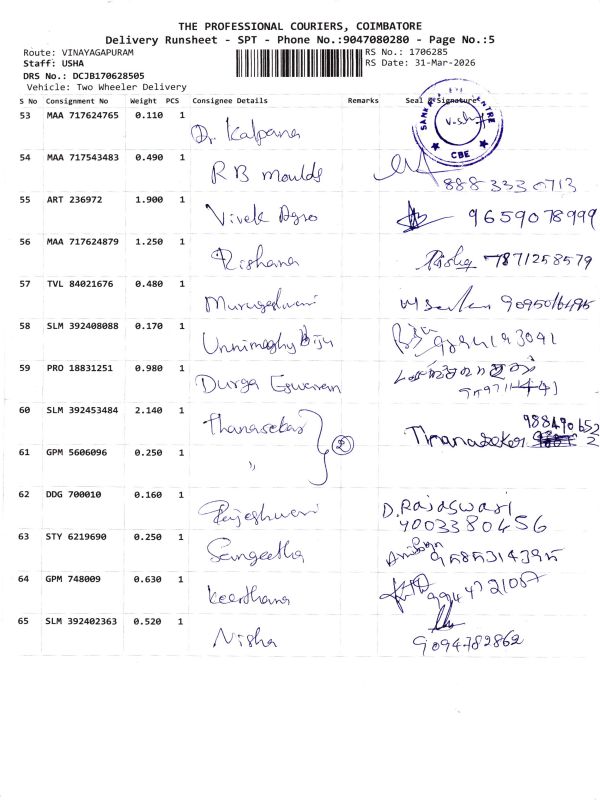 THE PROFESSIONAL COURIERS, COIMBATORE
Delivery Runsheet - SPT - Phone No.:9047080280 - Page No.:5
Route: VINAYAGAPURAM RS No.: 1706285
Staff: USHA RS Date: 31-Mar-2026
DRS No.: DCJB170628505
Vehicle: Two Wheeler Delivery
S No Consignment No Weight PCS Consignee Details Remarks Seal & Signature
53 MAA 717624765 0.110 1 Dr. Kalpana CENTRE CBE
54 MAA 717543483 0.490 1 R B Moulds 888 333 0713
55 ART 236972 1.900 1 Vivek Agro 9659078999
56 MAA 717624879 1.250 1 Rishana 7871258579
57 TVL 84021676 0.480 1 Murugeshwari
58 SLM 392408088 0.170 1 Unnimaghy Biju
59 PRO 18831251 0.980 1 Durga Eswaran
60 SLM 392453484 2.140 1 Thanasekar Thanasekar
61 GPM 5606096 0.250 1 " 2
62 DDG 700010 0.160 1 Rajeshwari D. Rajaswari
7003380456
63 STY 6219690 0.250 1 Sangeetha
64 GPM 748009 0.630 1 Keerthana
65 SLM 392402363 0.520 1 Nisha 9094782862